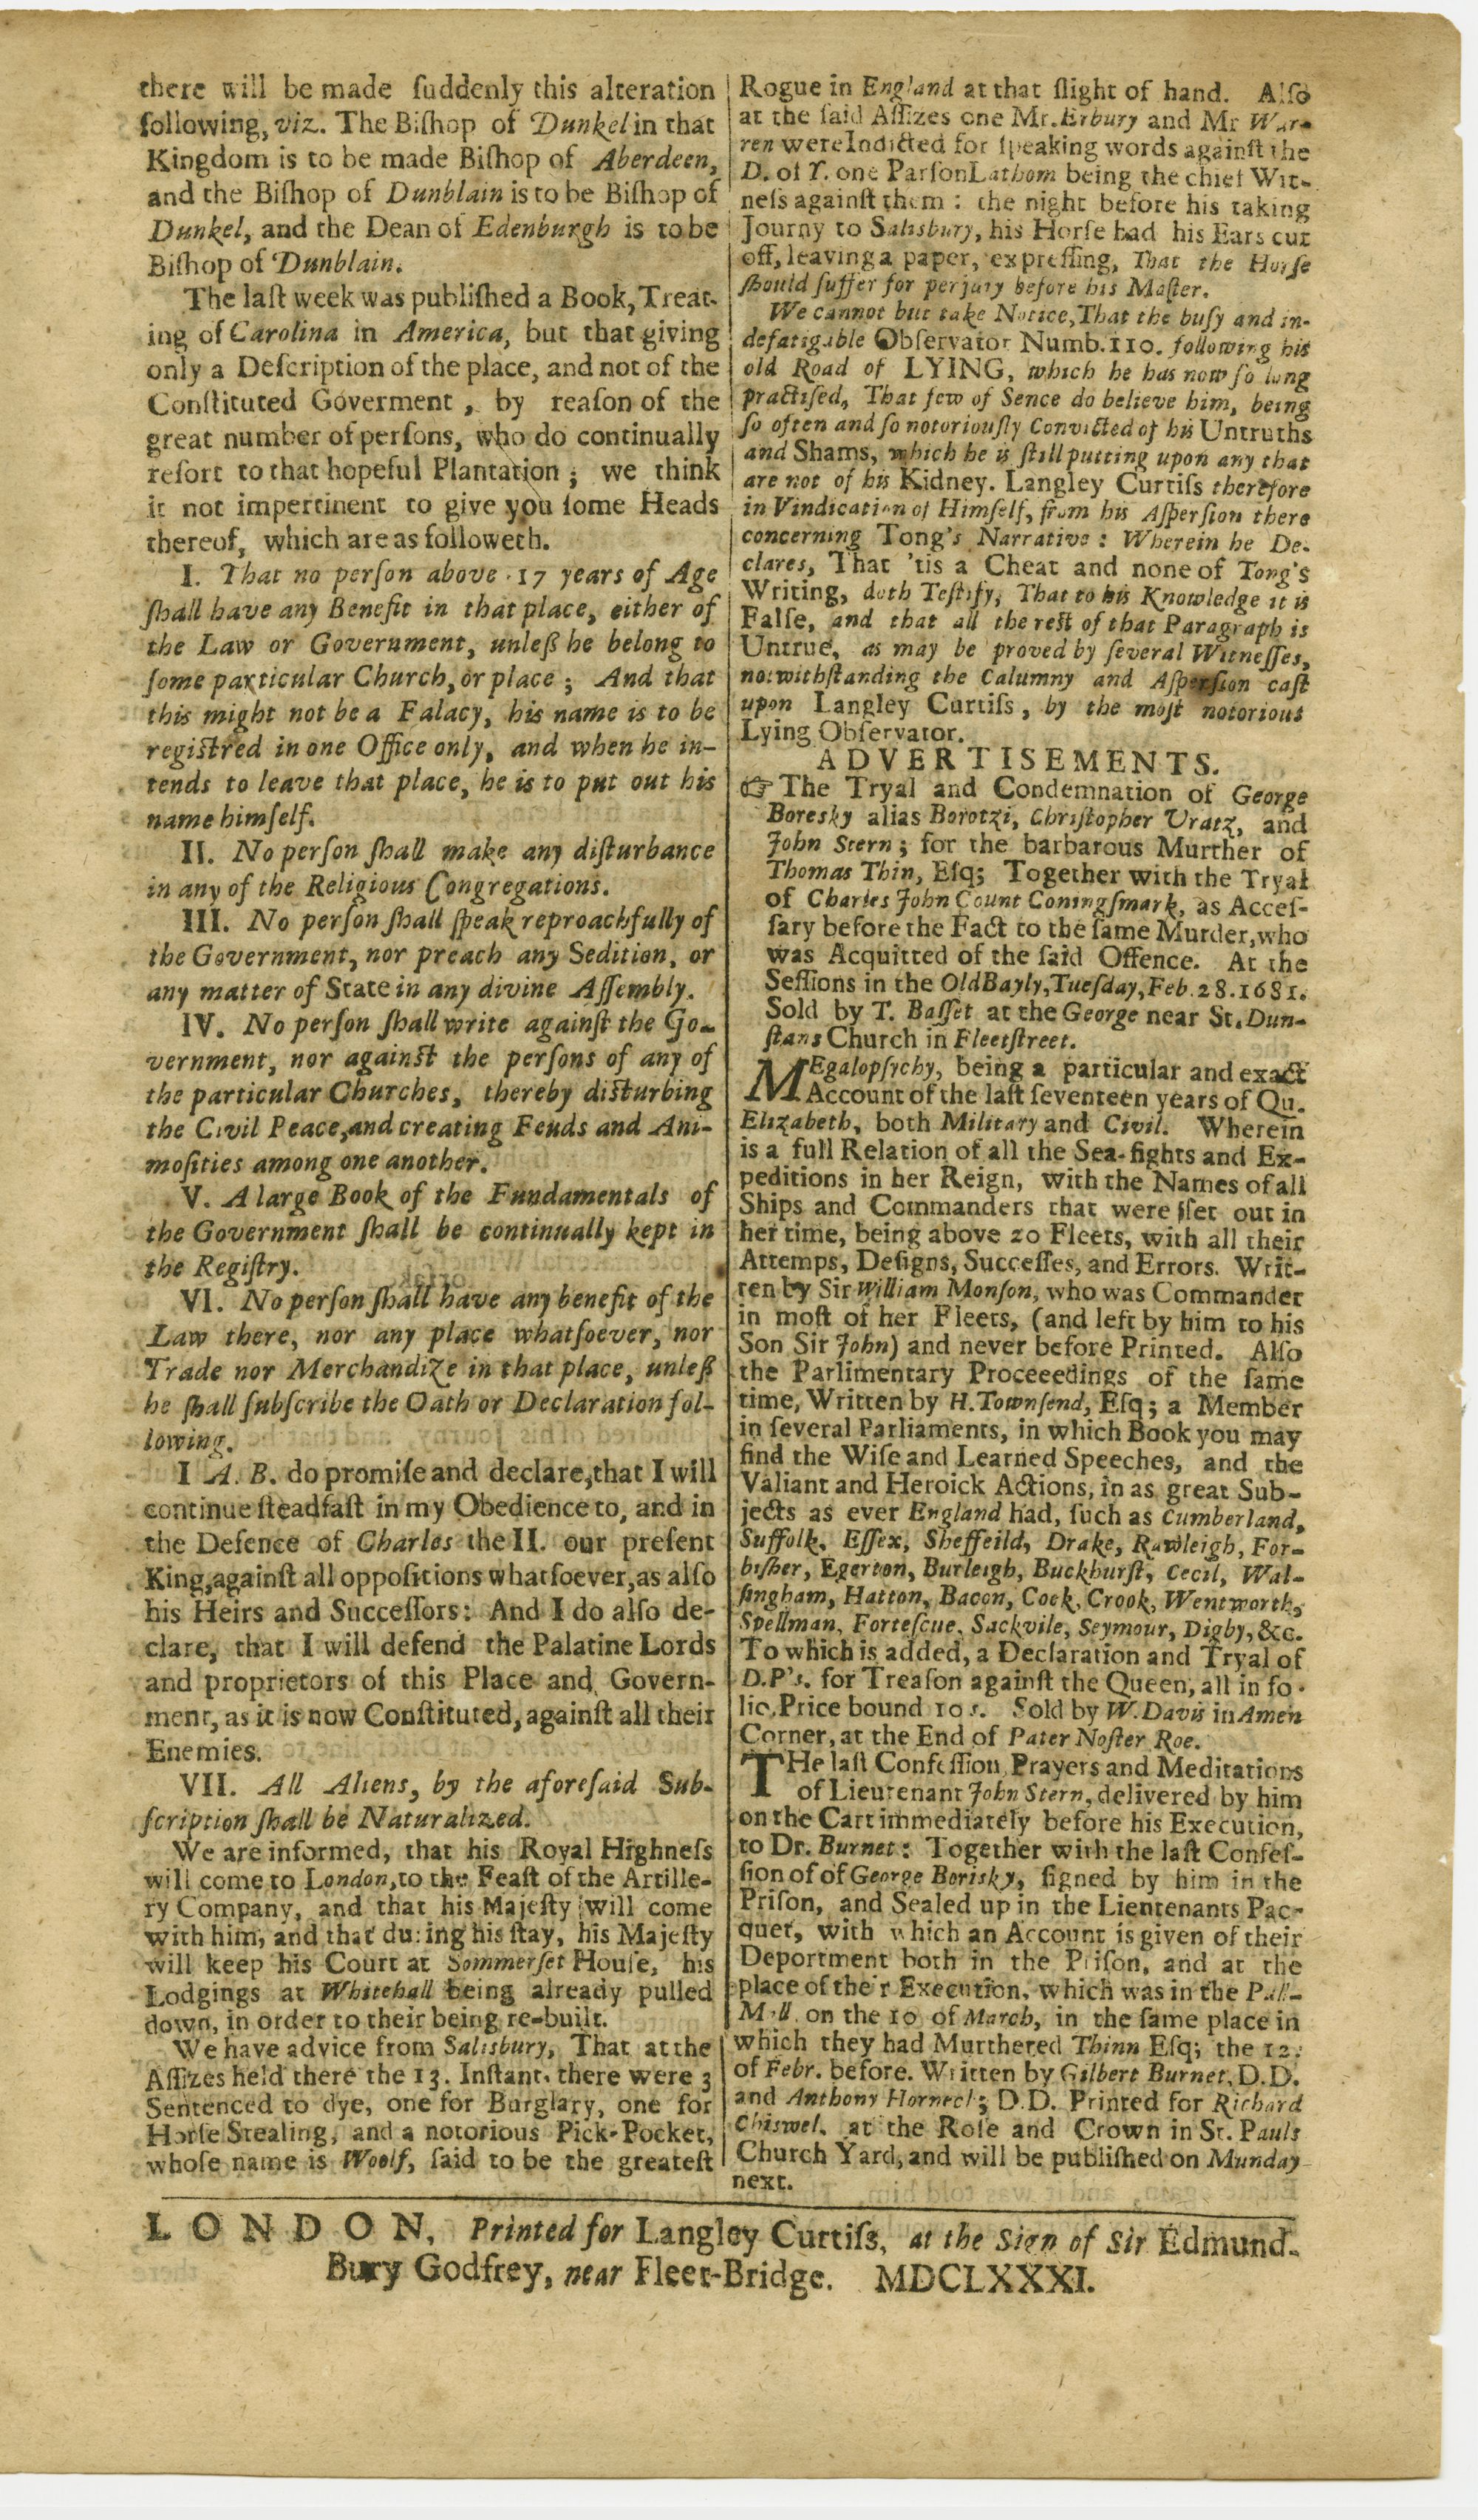 there will be made ſuddenly this alteration
following, viz. The Biſhop of Dunkel in that
Kingdom is to be made Biſhop of Aberdeen,
and the Biſhop of Dunblain is to be Biſhop of
Dunkel, and the Dean of Edenburgh is to be
Biſhop of Dunblain.
The laſt week was publiſhed a Book, Treat-
ing of Carolina in America, but that giving
only a Deſcription of the place, and not of the
Conſtituted Goverment, by reaſon of the
great number of perſons, who do continually
reſort to that hopeful Plantation; we think
it not impertinent to give you ſome Heads
thereof, which are as followeth.
I. That no perſon above 17 years of Age
ſhall have any Benefit in that place, either of
the Law or Government, unleß he belong to
ſome particular Church, or place; And that
this might not be a Falacy, his name is to be
regiſtred in one Office only, and when he in-
tends to leave that place, he is to put out his
name himſelf.
II. No perſon ſhall make any diſturbance
in any of the Religious Congregations.
III. No perſon ſhall ſpeak reproachfully of
the Government, nor preach any Sedition, or
any matter of State in any divine Aſſembly.
IV. No perſon ſhall write againſt the Go-
vernment, nor againſt the perſons of any of
the particular Churches, thereby diſturbing
the Civil Peace, and creating Feuds and Ani-
moſities among one another.
V. A large Book of the Fundamentals of
the Government ſhall be continually kept in
the Regiſtry.
VI. No perſon ſhall have any benefit of the
Law there, nor any place whatſoever, nor
Trade nor Merchandize in that place, unleß
he ſhall ſubſcribe the Oath or Declaration fol-
lowing.
I A. B. do promiſe and declare, that I will
continue ſteadfaſt in my Obedience to, and in
the Defence of Charles the II. our preſent
King, againſt all oppoſitions whatſoever, as alſo
his Heirs and Succeſſors: And I do alſo de-
clare, that I will defend the Palatine Lords
and proprietors of this Place and Govern-
ment, as it is now Conſtituted, againſt all their
Enemies.
VII. All Aliens, by the aforeſaid Sub-
ſcription ſhall be Naturalized.
We are informed, that his Royal Highneſs
will come to London, to the Feaſt of the Artille-
ry Company, and that his Majeſty will come
with him, and that during his ſtay, his Majeſty
will keep his Court at Sommerſet Houſe, his
Lodgings at Whitehall being already pulled
down, in order to their being re-built.
We have advice from Salisbury, That at the
Aſſizes held there the 13. Inſtant, there were 3
Sentenced to dye, one for Burglary, one for
Horſe Stealing, and a notorious Pick-Pocket,
whoſe name is Woolf, ſaid to be the greateſt
Rogue in England at that ſlight of hand. Alſo
at the ſaid Aſſizes one Mr. Erbury and Mr War-
ren were Indicted for ſpeaking words againſt the
D. of Y. one Parſon Lathom being the chief Wit-
neſs againſt them: the night before his taking
Journy to Salisbury, his Horſe had his Ears cut
off, leaving a paper, expreſſing, That the Horſe
ſhould ſuffer for perjury before his Maſter.
We cannot but take Notice, That the buſy and in-
defatigable Obſervator Numb. 110. following his
old Road of LYING, which he has now ſo long
practiſed, That few of Sence do believe him, being
ſo often and ſo notoriouſly Convicted of his Untruths
and Shams, which he is ſtill putting upon any that
are not of his Kidney. Langley Curtiſs therefore
in Vindication of Himſelf, from his Aſperſion there
concerning Tong's Narrative: Wherein he De-
clares, That 'tis a Cheat and none of Tong's
Writing, doth Teſtify, That to his Knowledge it is
Falſe, and that all the reſt of that Paragraph is
Untrue, as may be proved by ſeveral Witneſſes,
notwithſtanding the Calumny and Aſperſion caſt
upon Langley Curtiſs, by the moſt notorious
Lying Obſervator.
ADVERTISEMENTS.
☞ The Tryal and Condemnation of George
Boresky alias Borotzi, Chriſtopher Vratz, and
John Stern; for the barbarous Murther of
Thomas Thin, Eſq; Together with the Tryal
of Charles John Count Coningſmark, as Acceſ-
ſary before the Fact to the ſame Murder, who
was Acquitted of the ſaid Offence. At the
Seſſions in the Old Bayly, Tueſday, Feb. 28. 1681.
Sold by T. Baſſet at the George near St. Dun-
ſtans Church in Fleetſtreet.
MEgalopſychy, being a particular and exact
Account of the laſt ſeventeen years of Qu.
Elizabeth, both Military and Civil. Wherein
is a full Relation of all the Sea-fights and Ex-
peditions in her Reign, with the Names of all
Ships and Commanders that were ſſet out in
her time, being above 20 Fleets, with all their
Attemps, Deſigns, Succeſſes, and Errors. Writ-
ten by Sir William Monſon, who was Commander
in moſt of her Fleets, (and left by him to his
Son Sir John) and never before Printed. Alſo
the Parlimentary Proceeedings of the ſame
time, Written by H. Townſend, Eſq; a Member
in ſeveral Parliaments, in which Book you may
find the Wiſe and Learned Speeches, and the
Valiant and Heroick Actions, in as great Sub-
jects as ever England had, ſuch as Cumberland,
Suffolk, Eſſex, Sheffeild, Drake, Rawleigh, For-
biſher, Egerton, Burleigh, Buckhurſt, Cecil, Wal-
ſingham, Hatton, Bacon, Cock, Crook, Wentworth,
Spellman, Forteſcue, Sackvile, Seymour, Digby, &c.
To which is added, a Declaration and Tryal of
D.P's. for Treaſon againſt the Queen, all in fo-
lio, Price bound 10 s. Sold by W. Davis in Amen
Corner, at the End of Pater Noſter Roe.
THe laſt Confeſſion Prayers and Meditations
of Lieutenant John Stern, delivered by him
on the Cart immediately before his Execution,
to Dr. Burnet: Together with the laſt Confeſ-
ſion of of George Borisky, ſigned by him in the
Priſon, and Sealed up in the Lientenants Pac-
quet, with which an Account is given of their
Deportment both in the Priſon, and at the
place of their Execution, which was in the Pall-
Mall on the 10 of March, in the ſame place in
which they had Murthered Thinn Eſq; the 12.
of Febr. before. Written by Gilbert Burnet, D.D.
and Anthony Horneck; D.D. Printed for Richard
Chiswel, at the Roſe and Crown in St. Pauls
Church Yard, and will be publiſhed on Munday
next.
LONDON, Printed for Langley Curtiſs, at the Sign of Sir Edmund-
Bury Godfrey, near Fleet-Bridge. MDCLXXXI.